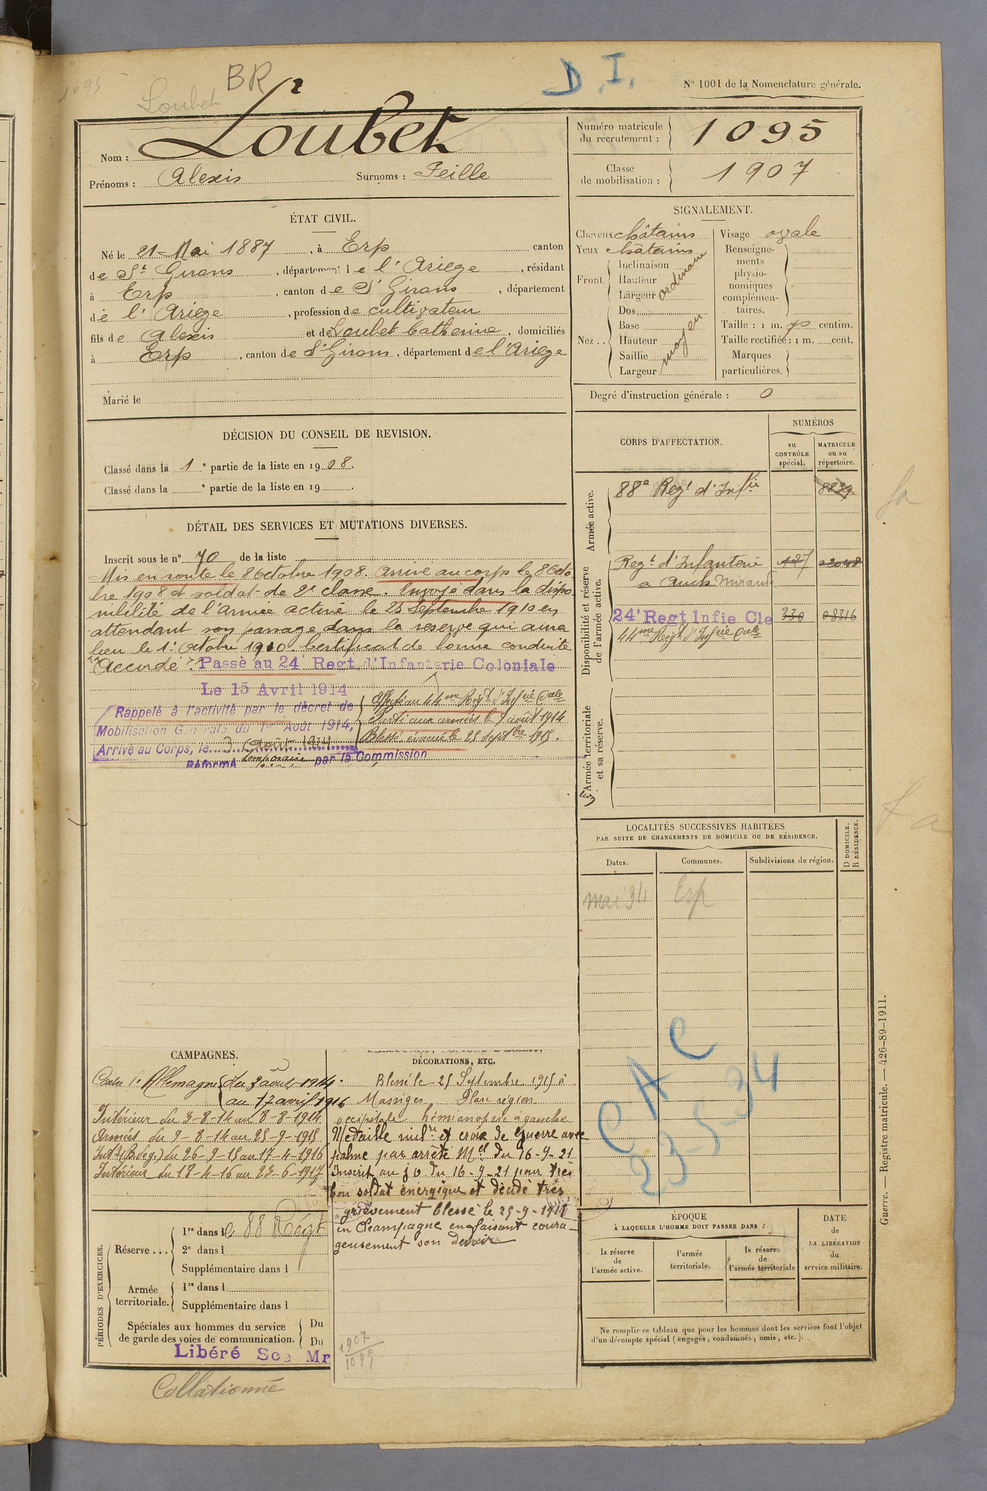 1095
Loubet
BR
D.I.
N° 1001 de la Nomenclature générale.
Nom : Loubet
Prénoms : Alexis Surnoms : Feille
Numéro matricule du recrutement : 1095
Classe de mobilisation : 1907
ÉTAT CIVIL.
Né le 21 Mai 1887, à Erp canton
de St Girons, département de l'Ariège, résidant
à Erp, canton de St Girons, département
de l'Ariège, profession de cultivateur
fils de Alexis et de Loubet Catherine, domiciliés
à Erp, canton de St Girons, département de l'Ariège
Marié le
SIGNALEMENT.
Cheveux châtains
Yeux châtains
Front. Inclinaison
Hauteur
Largeur
ordinaire
Nez... Dos
Base
Hauteur
Saillie
Largeur
moyen
Visage ovale
Renseignements physionomiques complémentaires.
Taille : 1 m. 70 centim.
Taille rectifiée : 1 m. cent.
Marques particulières.
Degré d'instruction générale : 0
DÉCISION DU CONSEIL DE REVISION.
Classé dans la 1e partie de la liste en 1908.
Classé dans la e partie de la liste en 19 .
DÉTAIL DES SERVICES ET MUTATIONS DIVERSES.
Inscrit sous le n° 70 de la liste
Mis en route le 8 Octobre 1908. Arrivé au corps le 8 Octo
bre 1908 et soldat de 2e classe. Envoyé dans la dispo
nibilité de l'armée active le 25 Septembre 1910 en
attendant son passage dans la réserve qui aura
lieu le 1er Octobre 1910. Certificat de bonne conduite
"Accordé". Passé au 24e Regt d'Infanterie Coloniale
Le 15 Avril 1914
Rappelé à l'activité par le décret de
Mobilisation Générale du 1er Août 1914,
Arrivé au Corps, le 3 Août 1914
Affecté au 44me Régt d'Infie Cale
Parti aux armées le 9 août 1914
Blessé évacué le 25 septbre 1915.
Réformé temporaire par la Commission
CORPS D'AFFECTATION.
NUMÉROS
au CONTRÔLE spécial.
MATRICULE ou au répertoire.
Armée active.
88e Regt d'Infie
Disponibilité et réserve de l'armée active.
Regt d'Infanterie
à Auch Mirande
127
24e Regt Infie Cle
330
08316
44me Régt d'Infie Cale
Armée territoriale et sa réserve.
LOCALITÉS SUCCESSIVES HABITÉES
PAR SUITE DE CHANGEMENTS DE DOMICILE OU DE RÉSIDENCE.
Dates. Communes. Subdivisions de région.
D DOMICILE.
R RÉSIDENCE.
Erp
CAC
23-5-34
CAMPAGNES.
Contre l'Allemagne du 3 août 1914
au 17 avril 1916
Intérieur du 3-8-14 au 8-8-1914
Armées du 9-8-14 au 25-9-1915
Int. (B. de g.) du 26-9-15 au 17-4-1916
Intérieur du 18-4-16 au 23-6-1917
DÉCORATIONS, ETC.
Blessé le 25 Septembre 1915 à
Massiges. Plaie région
occipitale hémianopsie à gauche
Médaille milre et croix de guerre avec
palme par arrêté Mel du 16-9-21
Inscrit au J O du 16-9-21 pour très
bon soldat énergique et décidé très
grièvement blessé le 25-9-1915
en Champagne en faisant coura-
geusement son devoir
1907
1095
PÉRIODES D'EXERCICES.
Réserve... 1re dans le 88 Régt
2e dans l
Supplémentaire dans l
Armée territoriale. 1re dans l
Supplémentaire dans l
Spéciales aux hommes du service de garde des voies de communication. Du
Du
Libéré Sce Mre
Collationné
ÉPOQUE
À LAQUELLE L'HOMME DOIT PASSER DANS :
la réserve de l'armée active.
l'armée territoriale.
la réserve de l'armée territoriale
DATE de LA LIBÉRATION du service militaire.
Ne remplir ce tableau que pour les hommes dont les services font l'objet
d'un décompte spécial (engagés, condamnés, omis, etc.).
Guerre. — Registre matricule. — 426-89-1911.